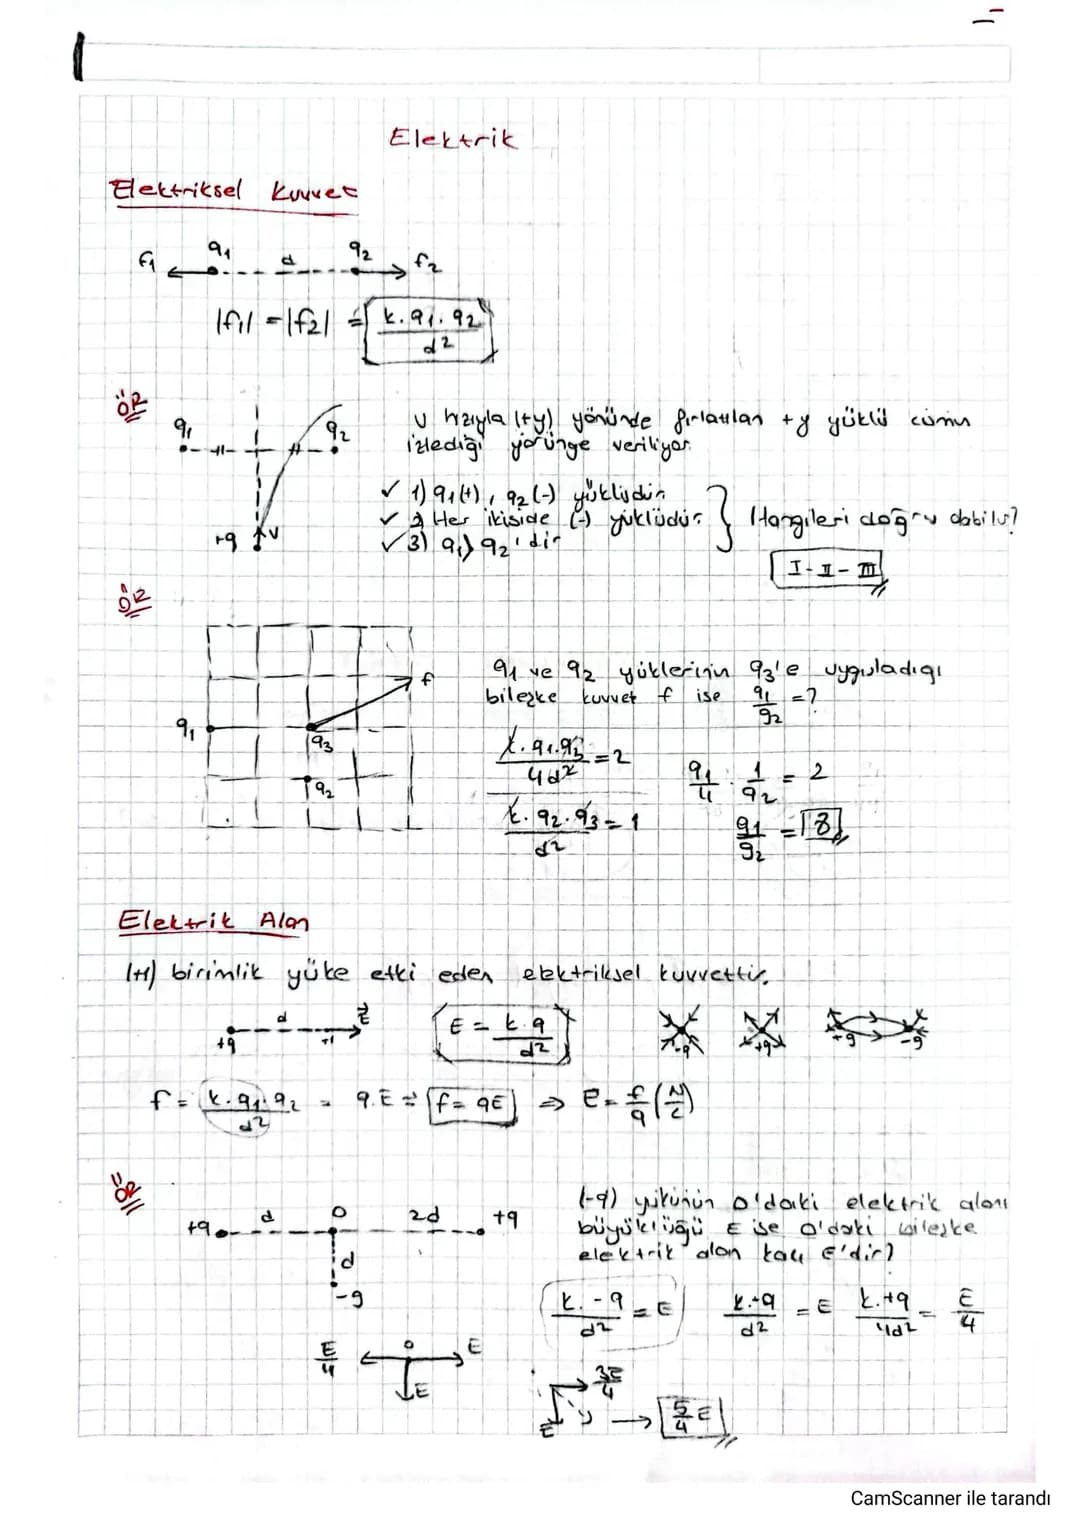 Elektrik
Elektriksel Kuvvet
f1 q1 d q2 f2
|f1| = |f2| = k.q1.q2 / d²
ÖR
q1 q2 +q v
v hızıyla (+y) yönünde fırlatılan +q yüklü cismin
izlediği yörünge veriliyor.
✓ 1) q1(+), q2(-) yüklüdür
✓ 2) Her ikiside (-) yüklüdür
✓ 3) q1 > q2'dir
Hangileri doğru olabilir?
I - II - III
ÖR
q1 q3 q2 f
q1 ve q2 yüklerinin q3'e uyguladığı
bileşke kuvvet f ise q1/q2 = ?
k.q1.q3 / 4d² = 2
k.q2.q3 / d² = 1
q1/4 . 1/q2 = 2
q1/q2 = 8
Elektrik Alan
(+1) birimlik yüke etki eden elektriksel kuvvettir.
+q d +1 E
E = k.q / d²
-q +q +q -q
f = k.q1.q2 / d² = q.E = f = qE ⇒ E = f/q (N/C)
ÖR
+q d O 2d +q
d
-q
(-q) yükünün O'daki elektrik alanı
büyüklüğü E ise O'daki bileşke
elektrik alan kaç E'dir?
k.-q / d² = E k.+q / d² = E k.+q / 4d² = E/4
E/4 O E
E
3E/4
E → 5/4 E
CamScanner ile tarandı